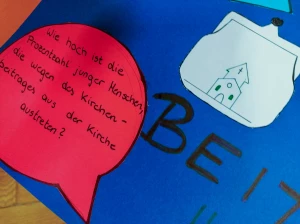 Wie hoch ist die
Prozentzahl junger Menschen,
die wegen des Kirchen-
beitrages aus der Kirche
austreten?
BEIT